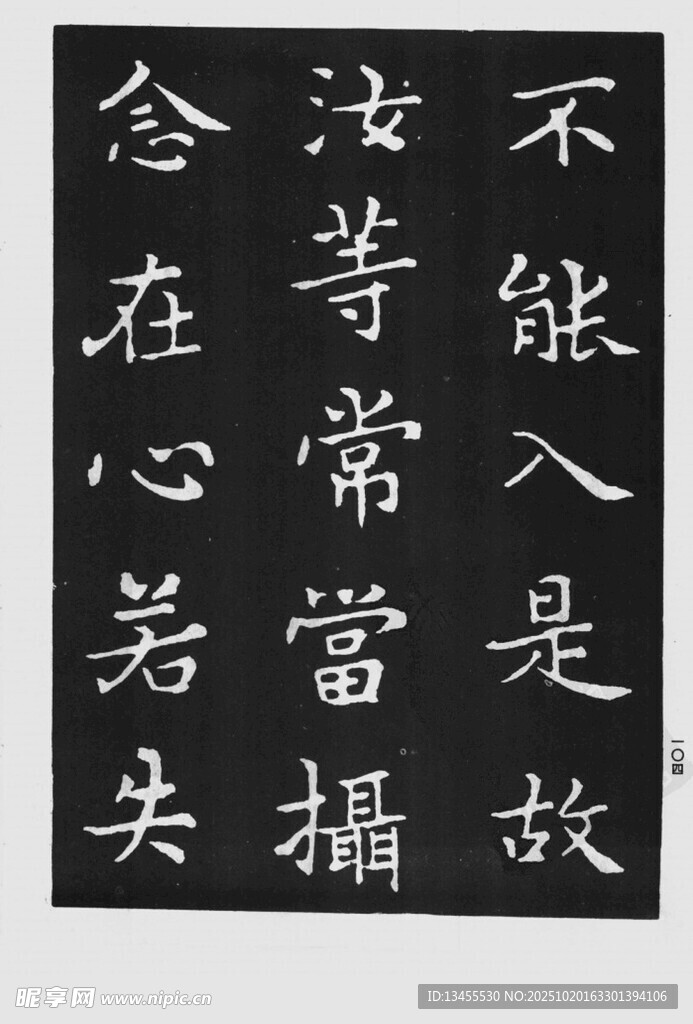 不能入是故
汝等常當攝
念在心若失
一〇四
昵享网 www.nipic.cn
ID:13455530 NO:20251020163301394106